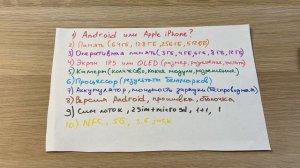 1) Android или Apple iPhone?
2) Память (64гб, 128гб, 256гб, 512гб)
3) Оперативная память (3гб, 4гб, 6гб, 8гб, 12гб)
4) Экран IPS или OLED (размер, разрешение,
5) Камеры (количество, какие модули, разрешение)
6) Процессор (результаты бенчмарков)
7) Аккумулятор, мощность зарядки (беспроводная)
8) Версия Android, прошивка, оболочка
9) Сим лоток, 2sim+microsd, 1+1, 1
10) NFC, 5G, 3.5 jack